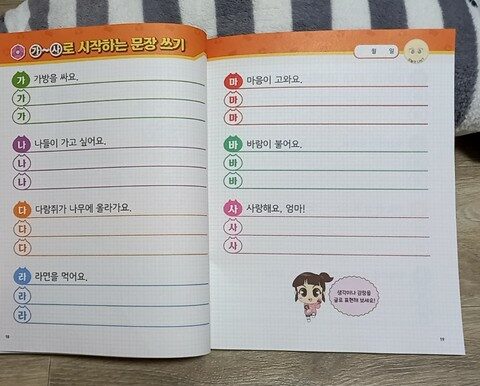 가~사로 시작하는 문장 쓰기
가 가방을 싸요.
가
가
나 나들이 가고 싶어요.
나
나
다 다람쥐가 나무에 올라가요.
다
다
라 라면을 먹어요.
라
라
18
월 일
마 마음이 고와요.
마
마
바 바람이 불어요.
바
바
사 사랑해요, 엄마!
사
사
생각이나 감정을
글로 표현해 보세요!
19